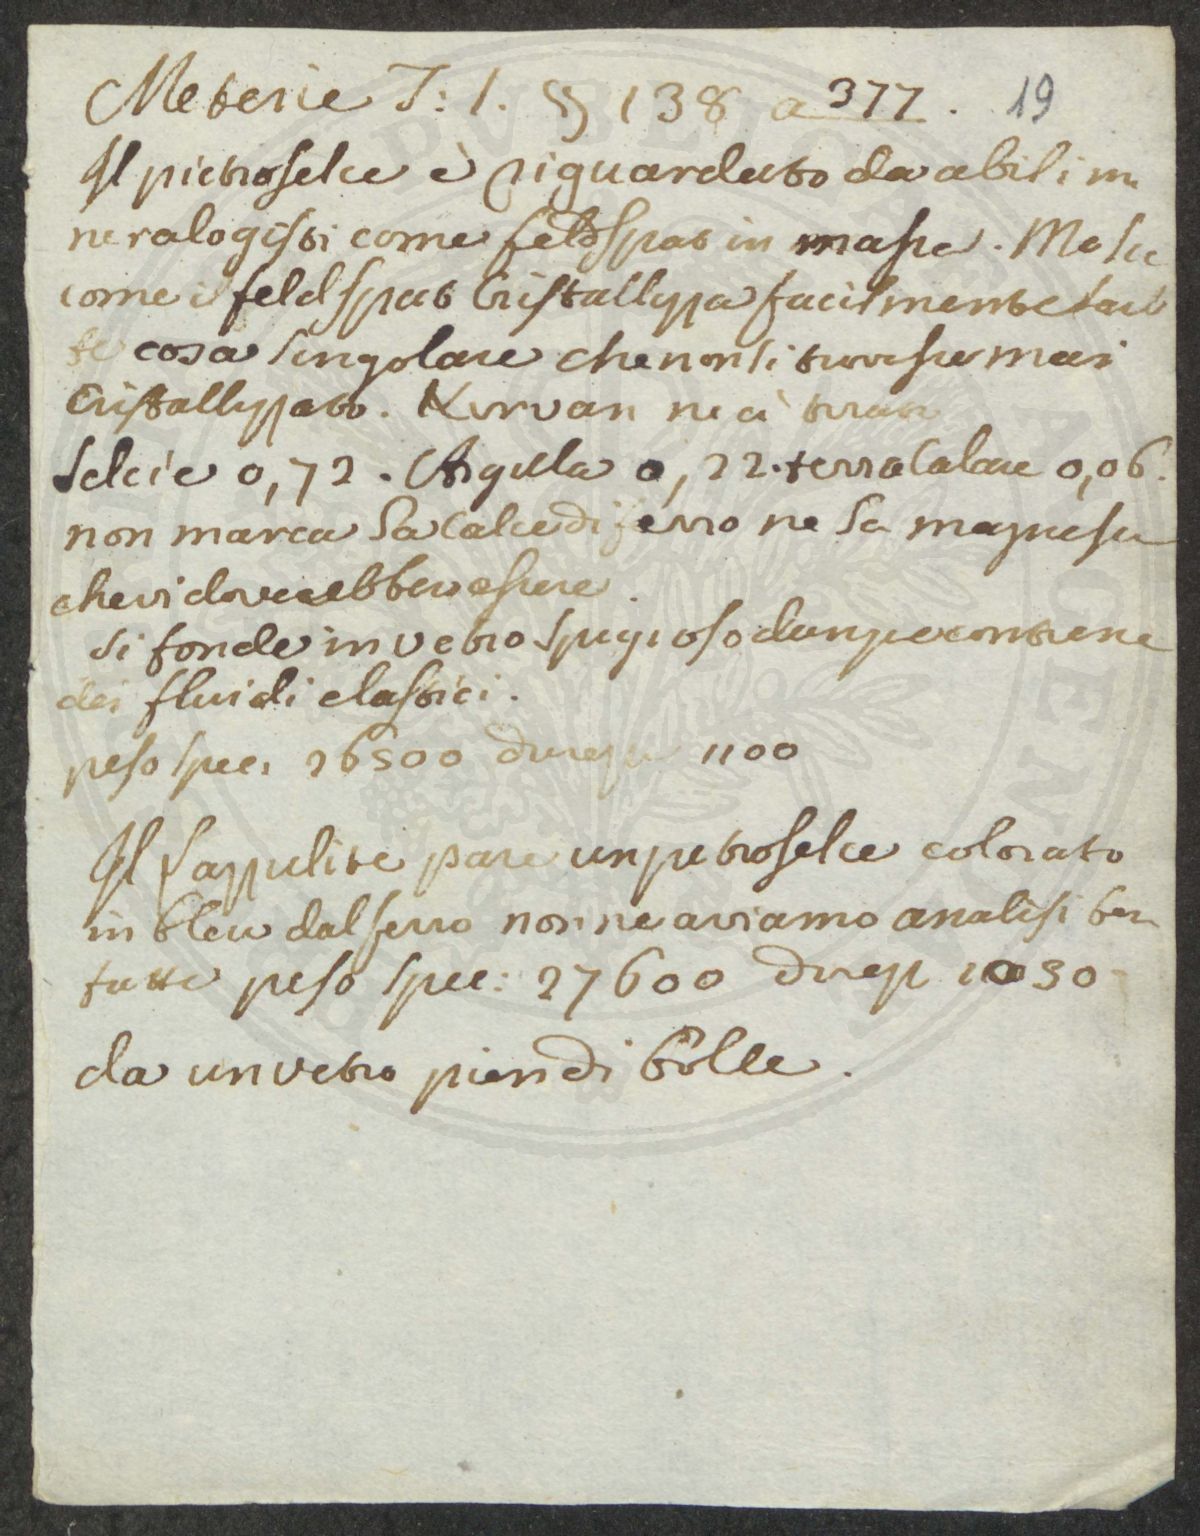 Meterie T: 1. § 138 a 377. 19
Il pietroselce è riguardato da abili mi
neralogisti come feldspat in massa. Ma sic
come il feldspat Cristallizza facilmente sareb
be cosa singolare che non si trovasse mai
Cristallizzato. Kirvan ne à tirato
Selcie 0,72. Argilla 0,22. terra Calcare 0,06.
non marca la Calce di ferro ne la magnesia
che vi dovrebbero essere.
si fonde in vetro spugioso dunque contiene
dei fluidi elastici.
peso spec. 26500 durezza 1100
Il Lazzulite pare un petroselce colorato
in bleu dal ferro non ne aviamo analisi ben
fatte peso spec: 27600 durez 1030
da un vetro pien di bolle.